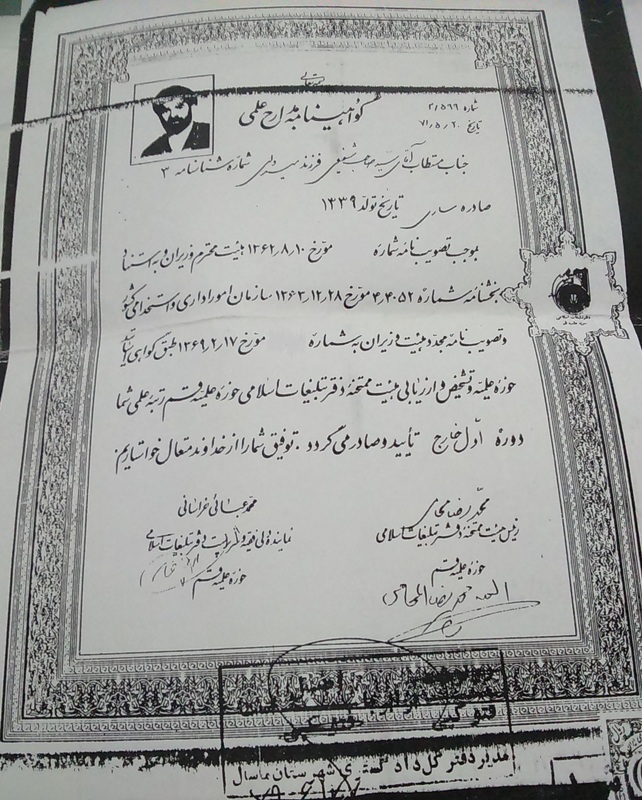 بسمه تعالی
گواهینامه مدارج علمی
شماره ۲/۵۶۶
تاریخ ۷۱/۵/۲۰
جناب مستطاب آقای سید شفیعی فرزند شماره شناسنامه ۳
صادره ساری تاریخ تولد ۱۳۳۹
بموجب تصویبنامه شماره مورخ ۱۳۶۲/۸/۱۰ هیئت محترم وزیران و به استناد
بخشنامه شماره ۴/۴۰۵۲ مورخ ۱۳۶۳/۱۲/۲۸ سازمان امور اداری و استخدامی کشور
و تصویب نامه مجدد هیئت وزیران به شماره مورخ ۱۳۶۹/۲/۱۷ طبق گواهی
حوزه علمیه و تشخیص و ارزیابی هیئت ممتحنه دفتر تبلیغات اسلامی حوزه علمیه قم رتبه علمی شما
دوره اول خارج تأیید و صادر می گردد. توفیق شما را از خداوند متعال خواستاریم.
محمد عبائی خراسانی
نماینده ولی فقیه و دفتر تبلیغات اسلامی
حوزه علمیه قم
محمد رضا
رئیس هیئت ممتحنه دفتر تبلیغات اسلامی
حوزه علمیه قم
مدیر دفتر کل دادگستری شهرستان ممسال